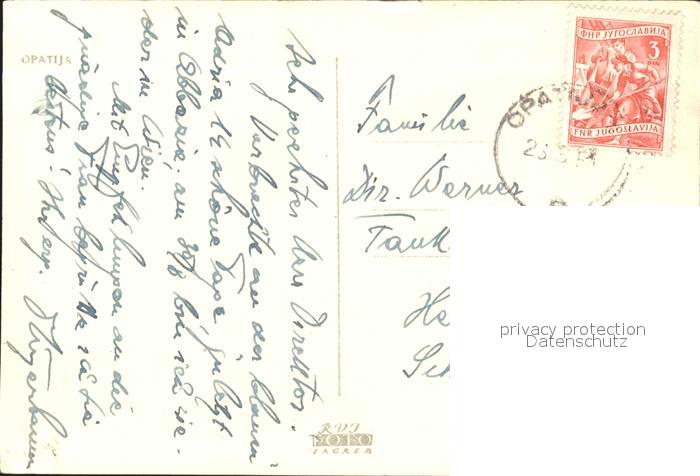 OPATIJA
Sehr geehrter Herr Direktor.
Verbrachte an der blauen
Adria 14 schöne Tage zuletzt
in Abbazia, am 30/8 bin ich wie-
der in Wien.
Mit Empfehlungen an die
gnädige Frau begrüsse ich Sie
bestens Ihr erg.
Familie
Dir. Werner
Tank
He
Sch
ФНР ЈУГОСЛАВИЈА
3
DIN
FNR JUGOSLAVIJA
OPATIJA
RVI
FOTO
ZAGREB
privacy protection
Datenschutz